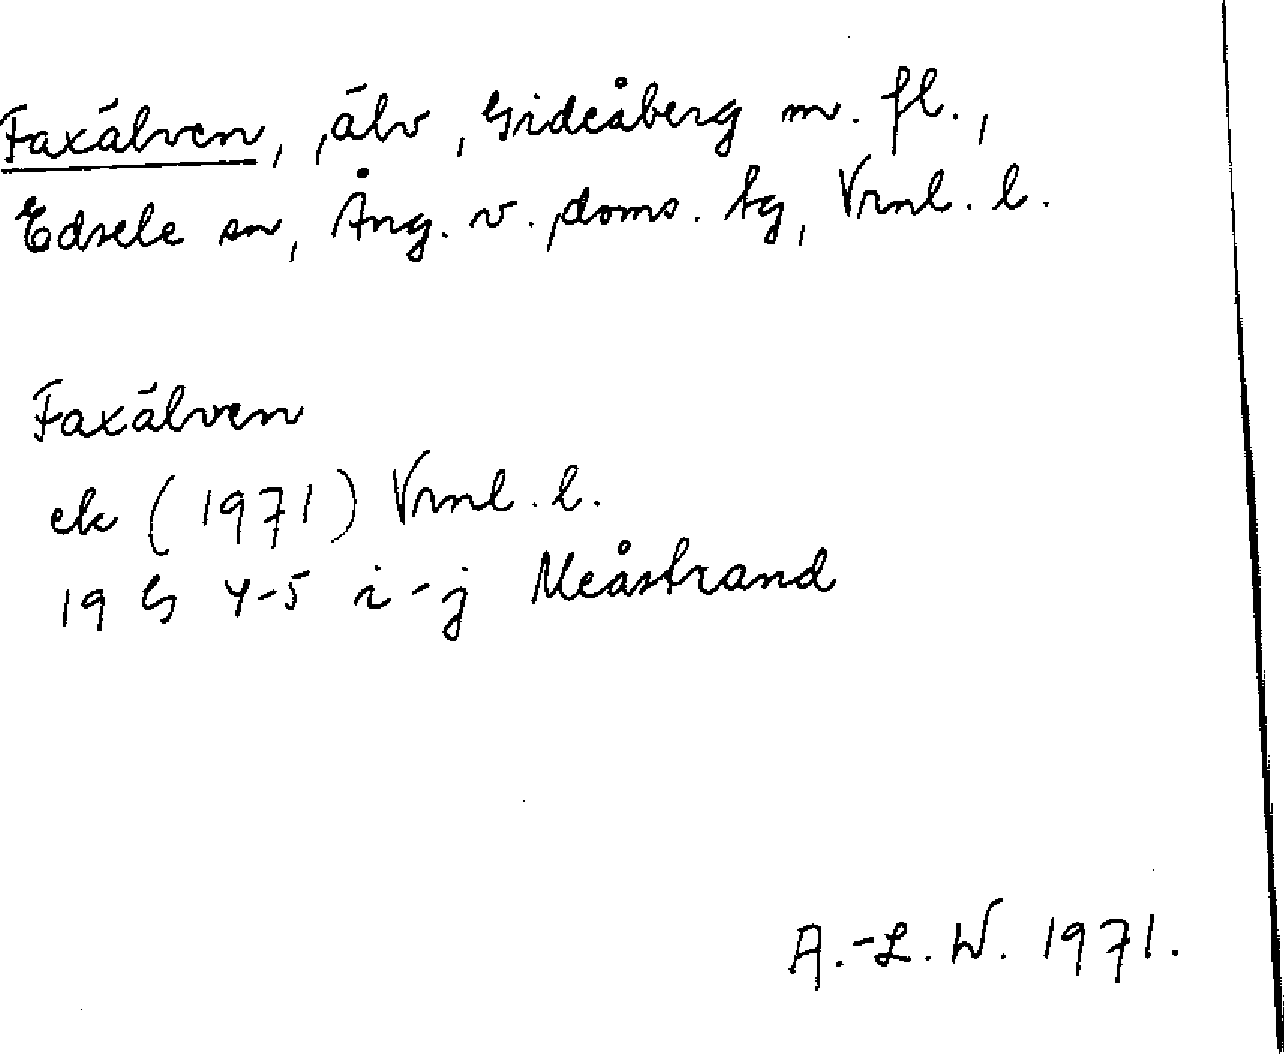 Faxälven, älv, Gideåberg m. fl.,
Edsele sn, Ång. v. doms. tg, Vrnl. l.
Faxälven
ek (1971) Vrnl. l.
19 G 4-5 i-j Meåstrand
A.-L. W. 1971.